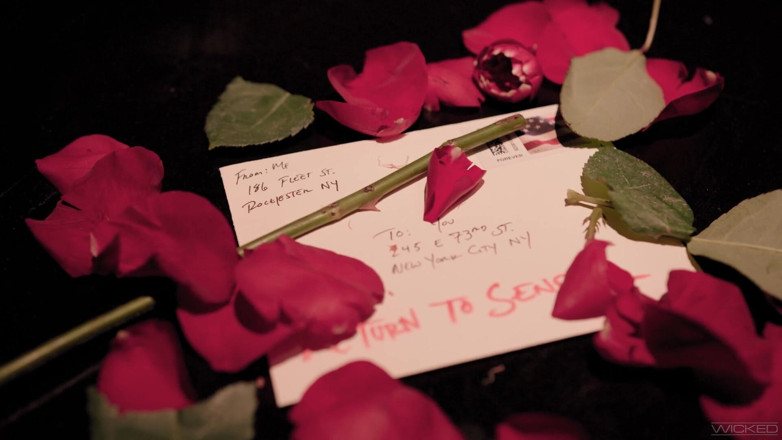 From: Me
186 Fleet St.
Rochester NY
FOREVER
To: You
245 E 73rd St.
New York City NY
TURN TO
WICKED